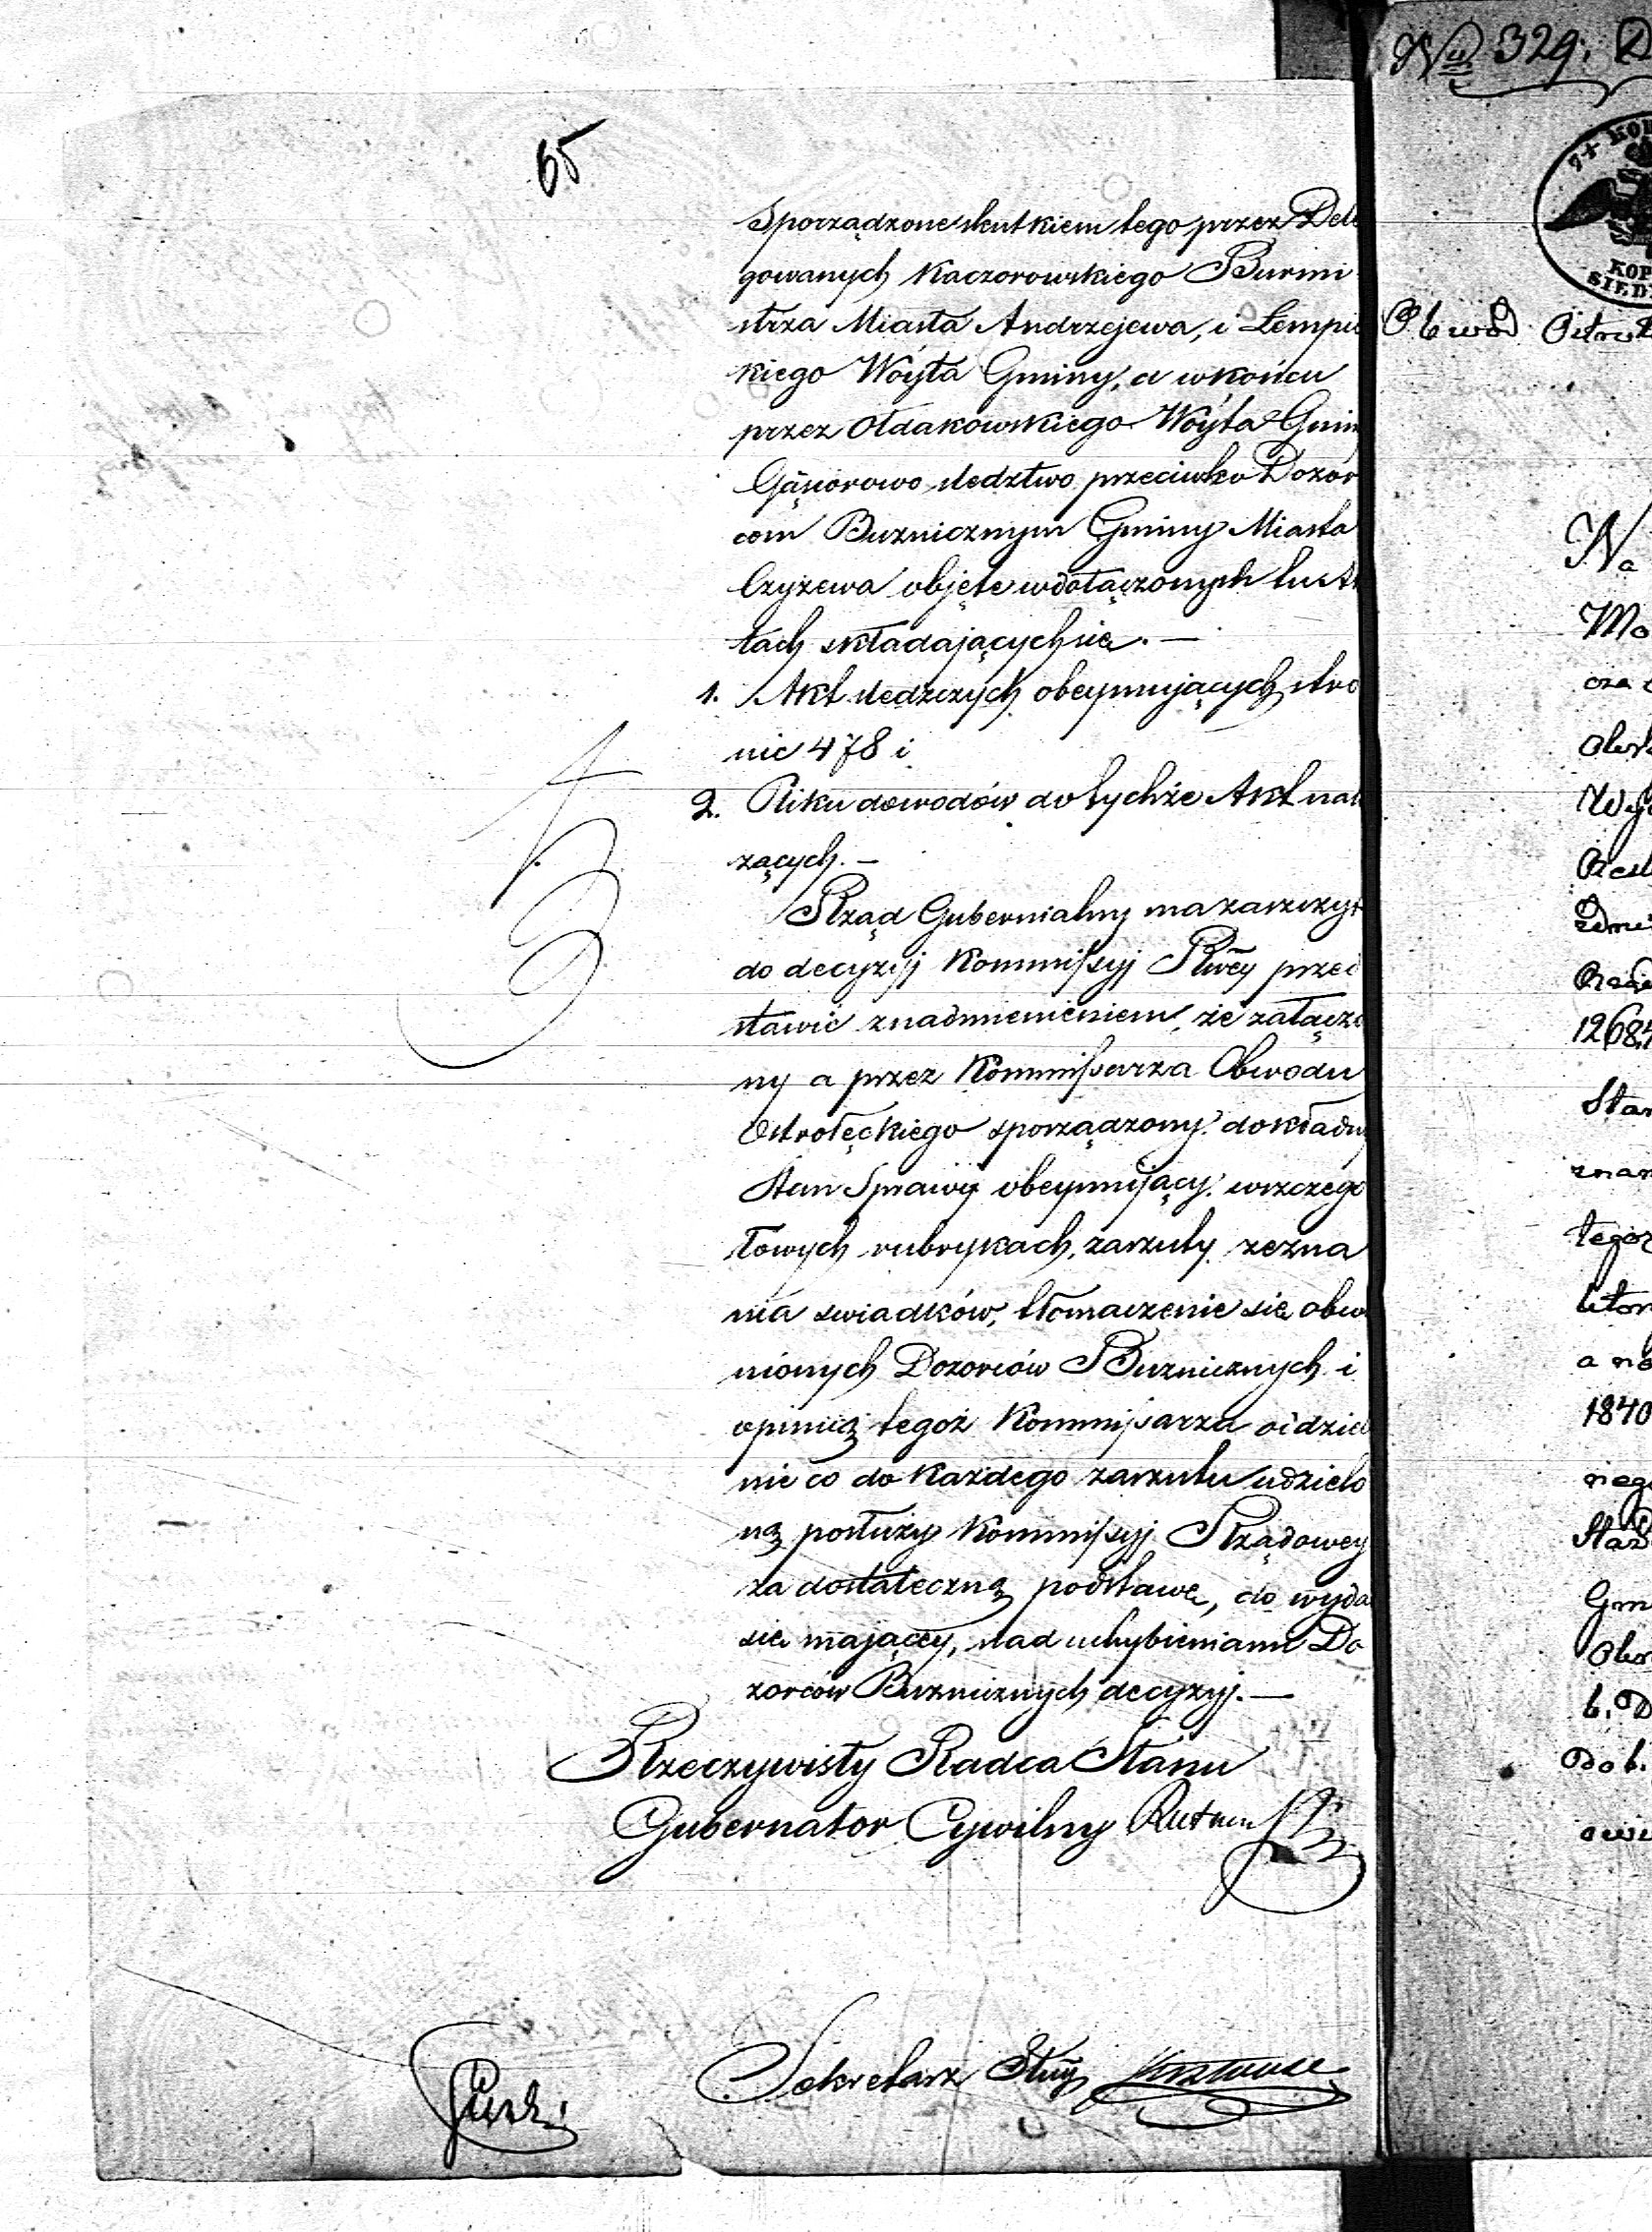 65
Sporządzone skutkiem tego przez Dele
gowanych Kaczorowskiego Burmi
strza Miasta Andrzejewa, i Lempic
kiego Wóyta Gminy, a wkońcu
przez Ołdakowskiego Wóyta Gmin
Gąsiorowo sledztwo przeciwko Dozór
com Buznicznym Gminy Miasta
Czyżewa objęte wdołączonych
tach składających się. —
1. Akt sledczych obeymujących stro
nic 478 i
2. Pliku dowodów do tychże Akt nale
zących. —
Rząd Gubernialny ma zaszczyt
do decyzyj Kommissyj Rwey przed
stawić znadmienieniem, że załączo
ny a przez Kommissarza Obwodu
Ostrołęckiego sporządzony dokładny
Stan Sprawy obeymujący wszczegó
łowych rubrykach, zarzuty zezna
nia swiadków, tłomaczenie się obwi
nionych Dozorców Buznicznych i
opinią tegoż Kommissarza oddziel
nie co do każdego zarzutu udzielo
ną posłuży Kommissyj Rządowey
za dostateczną podstawę, do wyda
się maiącey, nad uchybieniami Do
zorców Buznicznych decyzyj. —
Rzeczywisty Radca Stanu
Gubernator Cywilny
Sekretarz
№ 329.
KOP
SIED
Obwód Ostroł
Na
Mo
1268
Stan
znan
tegoż
1840
Gmi
b. D
Do b.